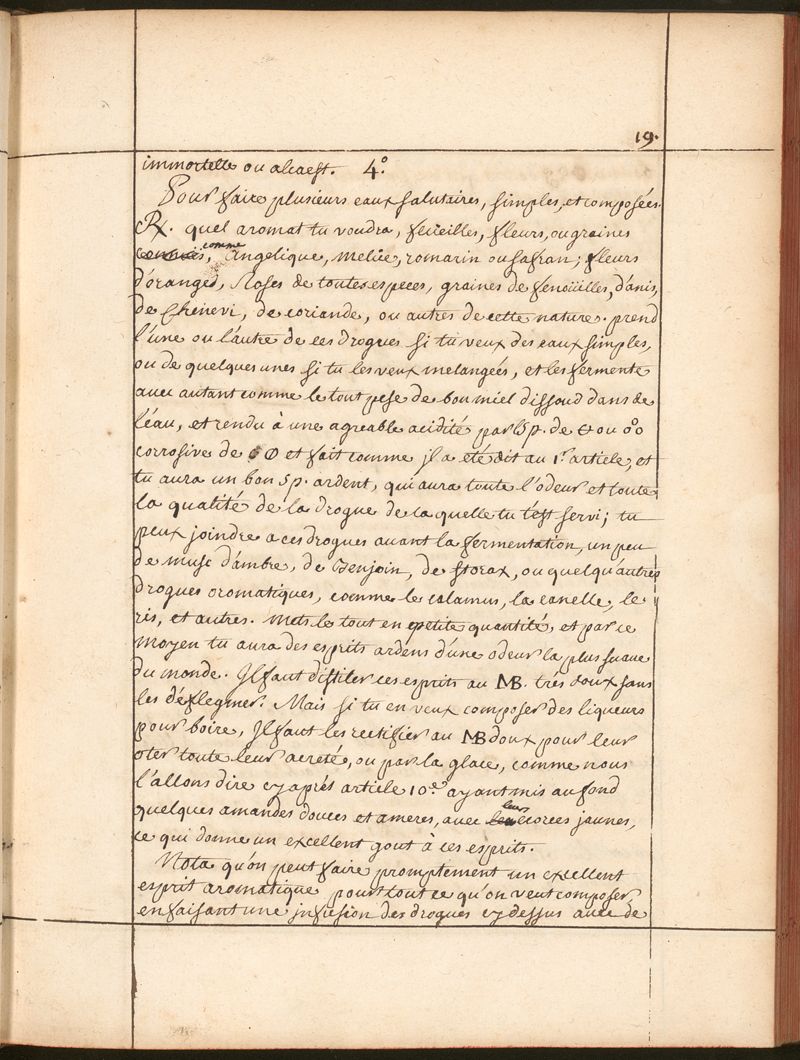 19.
immortelle ou alcaest. 4.º
Pour faire plusieurs eaux salutaires, simples, et composées.
℞. quel aromat tu voudra, feüeilles, fleurs, ou graines
comme, Angelique, melice, romarin ou safran; fleurs
d'oranges, Roses de toutes especes, graines de fenoüilles, d'anis,
de Chenevi, de coriande, ou autres de cette nature. prend
l'une ou l'autre de ces drogues si tu veux des eaux simples,
ou de quelques unes si tu les veux melangées, et les fermente
avec autant comme le tout pese de bon miel dissoud dans de
l'eau, et rendu à une agreable acidité par l'sp. de ou
corrosive de et fait comme jl a eté dit au 1.r article, et
tu aura un bon sp. ardent, qui aura toute l'odeur et toute
la qualité de la drogue de la quelle tu t'est servi; tu
peux joindre a ces drogues avant la fermentation, un peu
de musc d'ambre, de Benjoin, de storax, ou quelqu'autres
drogues oromatiques, comme le calamus, la canelle, le
ris, et autres. mets le tout en petite quantité, et par ce
moyen tu aura des esprits ardens d'une odeur la plus suave
du monde. Jl faut distiler ces esprits au MB. trés doux sans
les déflegmer. Mais si tu en veux composer des liqueurs
pour boire, Jl faut les rectifier au MB doux pour leur
oter toute leur acreté, ou par la glace, comme nous
l'allons dire cy aprés article 10.e ayant mis au fond
quelques amandes douces et ameres, avec leurs ecorces jaunes,
ce qui donne un excellent gout à ces esprits.
Nota qu'on peut faire promptement un excellent
esprit aromatique pour tout ce qu'on veut composer,
en faisant une jnfusion des drogues cy dessus avec de